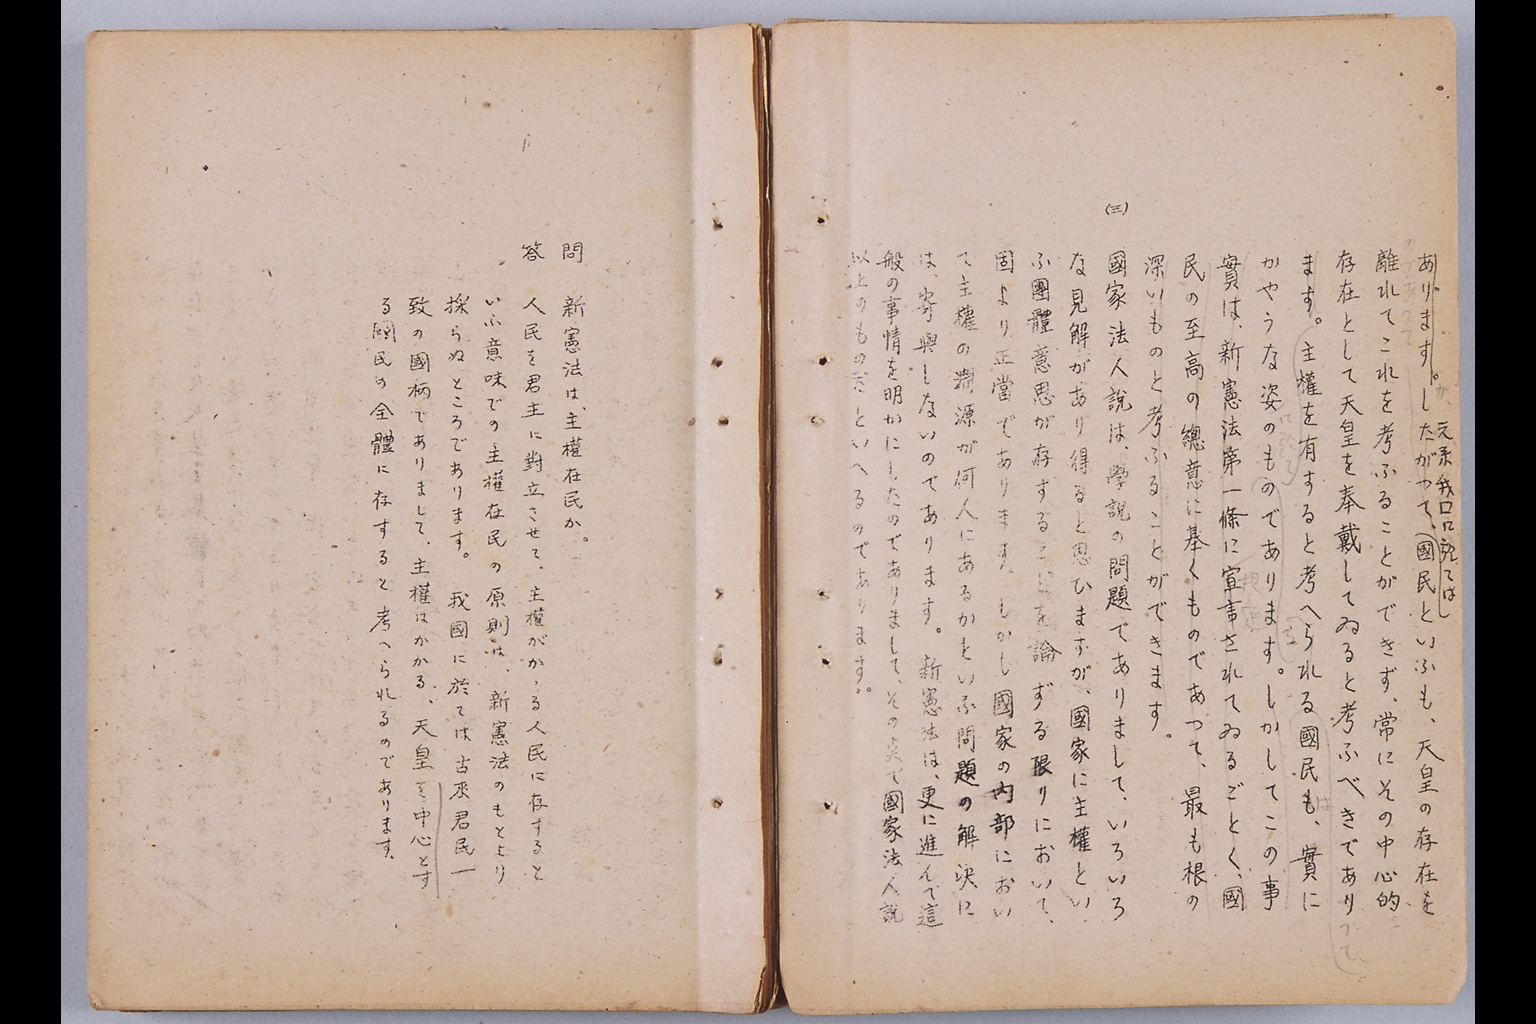 あります。したがつて、國民といふも、天皇の存在を
元來我國に於ては
離れてこれを考ふることができず、常にその中心的
存在として天皇を奉戴してゐると考ふべきであり
ます。主權を有すると考へられる國民も、實に
かやうな姿のものであります。しかしてこの事
實は、新憲法第一條に宣言されてゐるごとく、國
民の至高の總意に基くものであつて、最も根の
深いものと考ふることができます。
(三)
國家法人說は學說の問題でありまして、いろいろ
な見解があり得ると思ひますが、國家に主權とい
ふ團體意思が存することを論ずる限りにおいて、
固より正當であります。しかし國家の內部におい
て主權の淵源が何人にあるかといふ問題の解決に
は寄與しないのであります。新憲法は、更に進んで這
般の事情を明かにしたのでありまして、その点で國家法人說
以上のものだといへるのであります。
問 新憲法は、主權在民か。
答 人民を君主に對立させて、主權がかゝる人民に存すると
いふ意味での主權在民の原則は、新憲法のもとより
採らぬところであります。我國に於ては古來君民一
致の國柄でありまして、主權はかかる、天皇を中心とす
る國民の全體に存すると考へられるのであります。